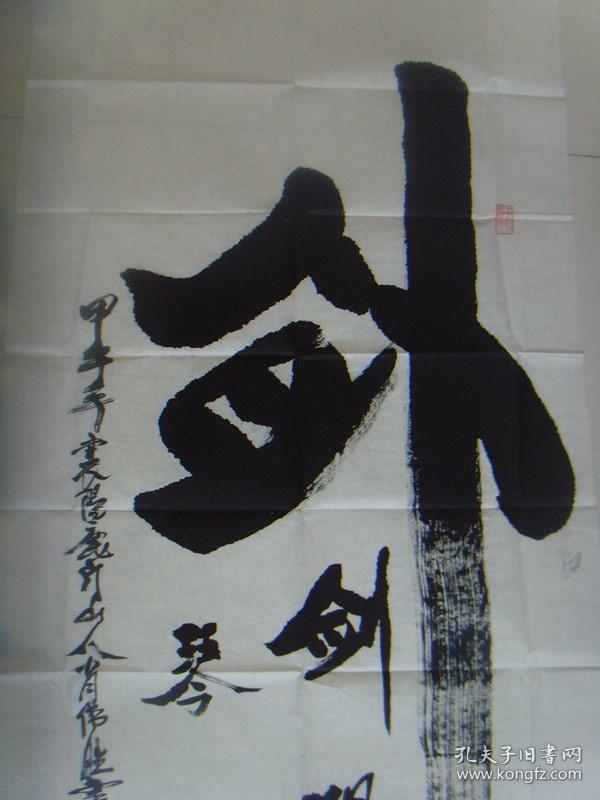 剑
剑
琴
甲午年襄陽鹿门山人肖伟
孔夫子旧书网
www.kongfz.com